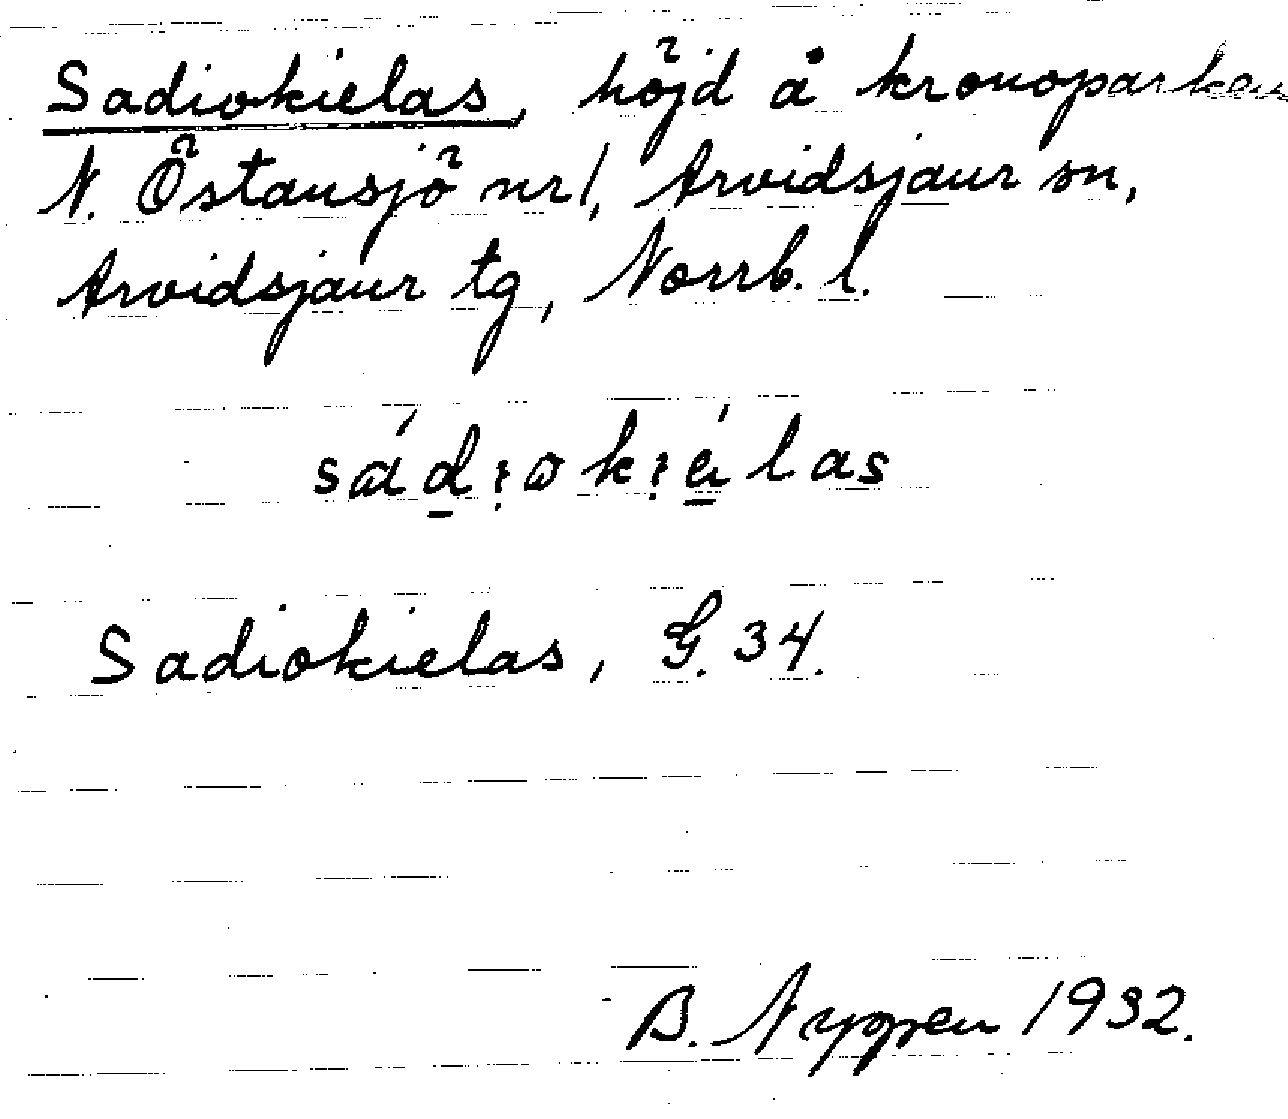 Sadiokielas, höjd å kronoparken
N. Östansjö nr 1, Arvidsjaur sn,
Arvidsjaur tg, Norrb. l.
sádi̯oki̯élas
Sadiokielas, G. 34.
B. Nygren 1932.